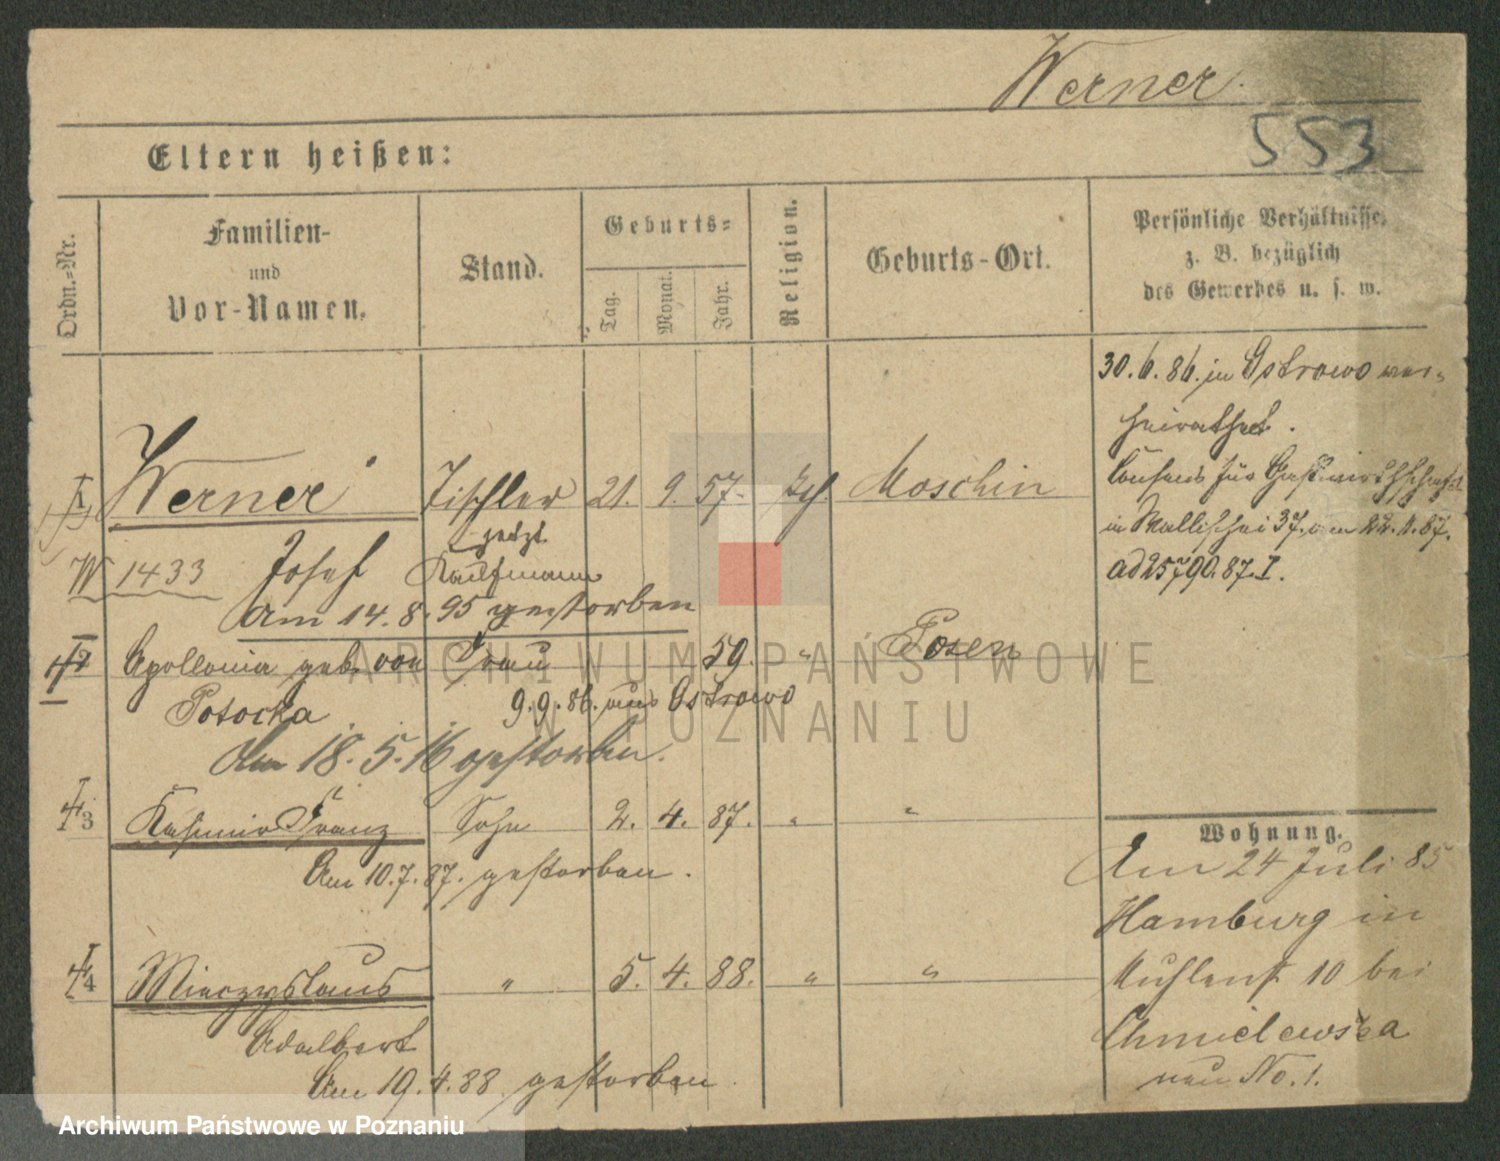 Werner.
553
Eltern heißen:
Ordn.-Nr.
Familien-
und
Vor-Namen.
Stand.
Geburts-
Tag.
Monat.
Jahr.
Religion.
Geburts-Ort.
Persönliche Verhältnisse,
z. B. bezüglich
des Gewerbes u. s. w.
30.6.86. in Ostrowo ver-
heirathet.
Consens für Gastwirthschaft
in Wallischei 37.
ad 25790.87.I.
1 Werner Tischler 21. 9. 57. Moschin
jetzt
W 1433 Josef Kaufmann
Am 14.8.95 gestorben
2 Apollonia geb. von Frau 59. " Posen
Potocka 9.9.86. aus Ostrowo
Am 18.5.16 gestorben.
3 Kasimir Franz Sohn 2. 4. 87. " "
Am 10.7.87. gestorben.
4 Mieczyslaus " 5. 4. 88. " "
Adalbert
Am 19.4.88 gestorben.
Wohnung.
Am 24 Juli 85
Hamburg in
Muhlenst 10 bei
Chmielewska
neu No. 1.
ARCHIWUM PAŃSTWOWE
W POZNANIU
Archiwum Państwowe w Poznaniu